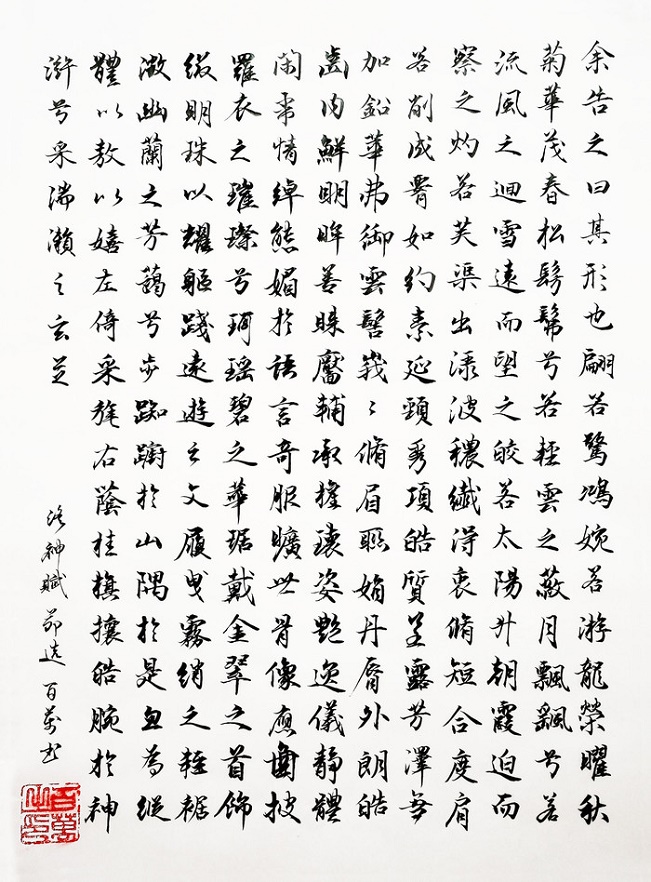 余告之曰其形也翩若驚鴻婉若游龍榮曜秋
菊華茂春松髣髴兮若輕雲之蔽月飄颻兮若
流風之迴雪遠而望之皎若太陽升朝霞迫而
察之灼若芙渠出渌波穠纖得衷脩短合度肩
若削成腰如約素延頸秀項皓質呈露芳澤無
加鉛華弗御雲髻峩〻脩眉聯娟丹脣外朗皓
齒內鮮明眸善睞靨輔承權瓌姿艷逸儀靜體
閑柔情綽態媚於語言奇服曠世骨像應圖披
羅衣之璀璨兮珥瑤碧之華琚戴金翠之首飾
綴明珠以耀軀踐遠遊之文履曳霧綃之輕裾
微幽蘭之芳藹兮步踟躕於山隅於是忽為縱
體以敖以嬉左倚采旄右蔭桂旗攘皓腕於神
滸兮采湍瀨之玄芝
洛神賦 節選 百萬書